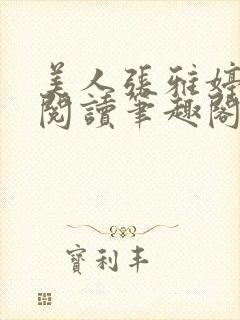 美人張雅婷
閱讀筆趣閣
寶利丰